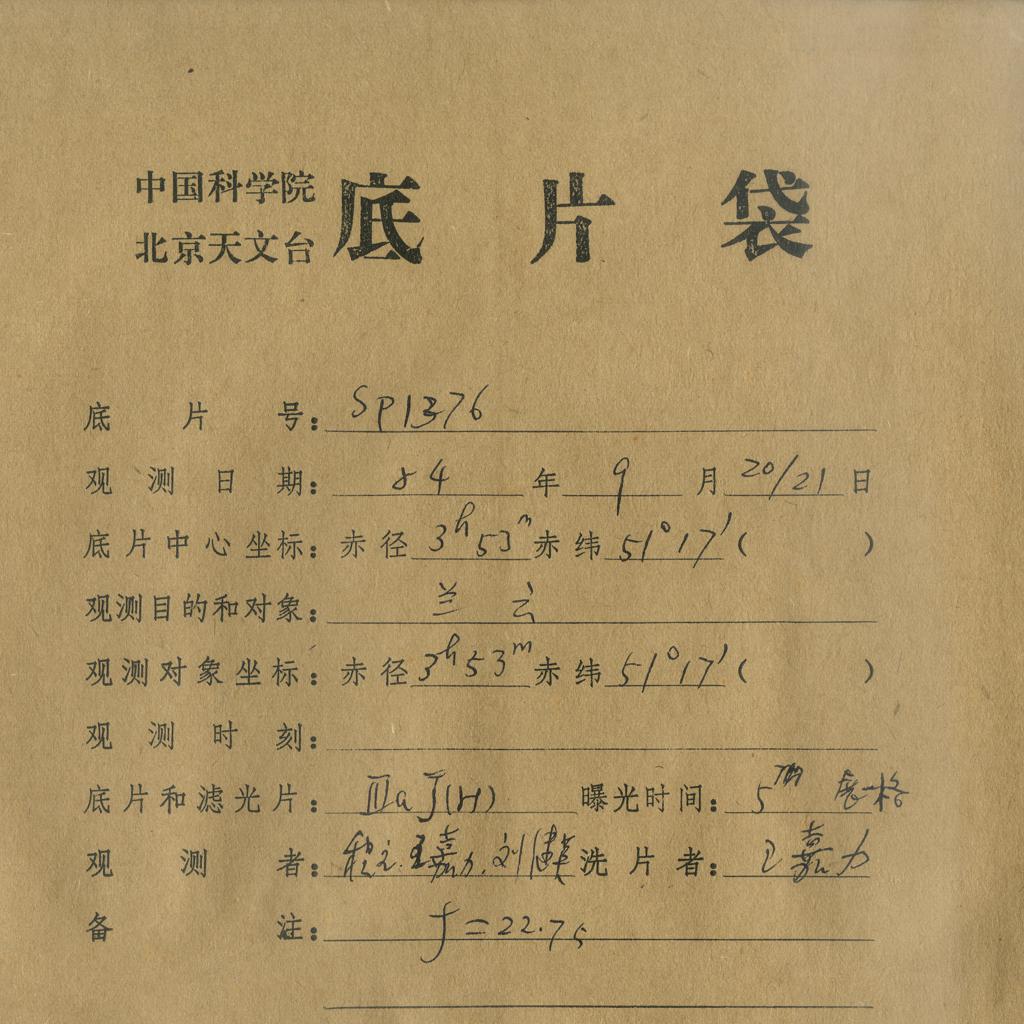 中国科学院
北京天文台
底片袋
底片号：SP1376
观测日期：84年9月20/21日
底片中心坐标：赤径3h53m赤纬51°17′（ ）
观测目的和对象：兰 云
观测对象坐标：赤径3h53m赤纬51°17′（ ）
观测时刻：
底片和滤光片：IIIaJ(H) 曝光时间：5m 展一格
观测者：王嘉力.刘 洗片者：王嘉力
备注：f=22.75